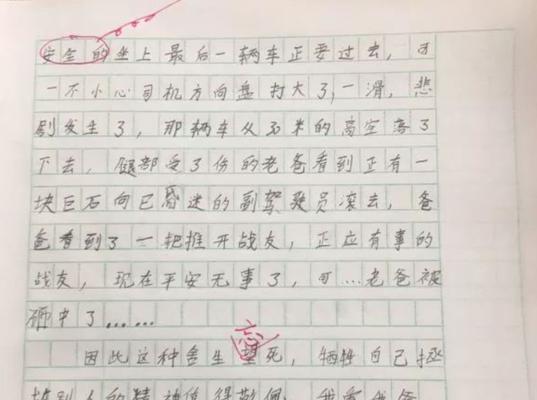 安全的坐上最后一辆车正要过去，可
一不小心司机方向盘打大了，一滑，悲
剧发生了，那辆车从30米的高空落了
下去，腿部受了份的老爸看到正有一
块巨石向已昏迷的副驾驶员滚去，爸
爸看到了一把推开战友，正应有事的
战友，现在平安无事了，可…老爸被
砸中了……
忘
因此这种舍生望死，牺牲自己拯
别人的精神值得敬佩，我爱我爸